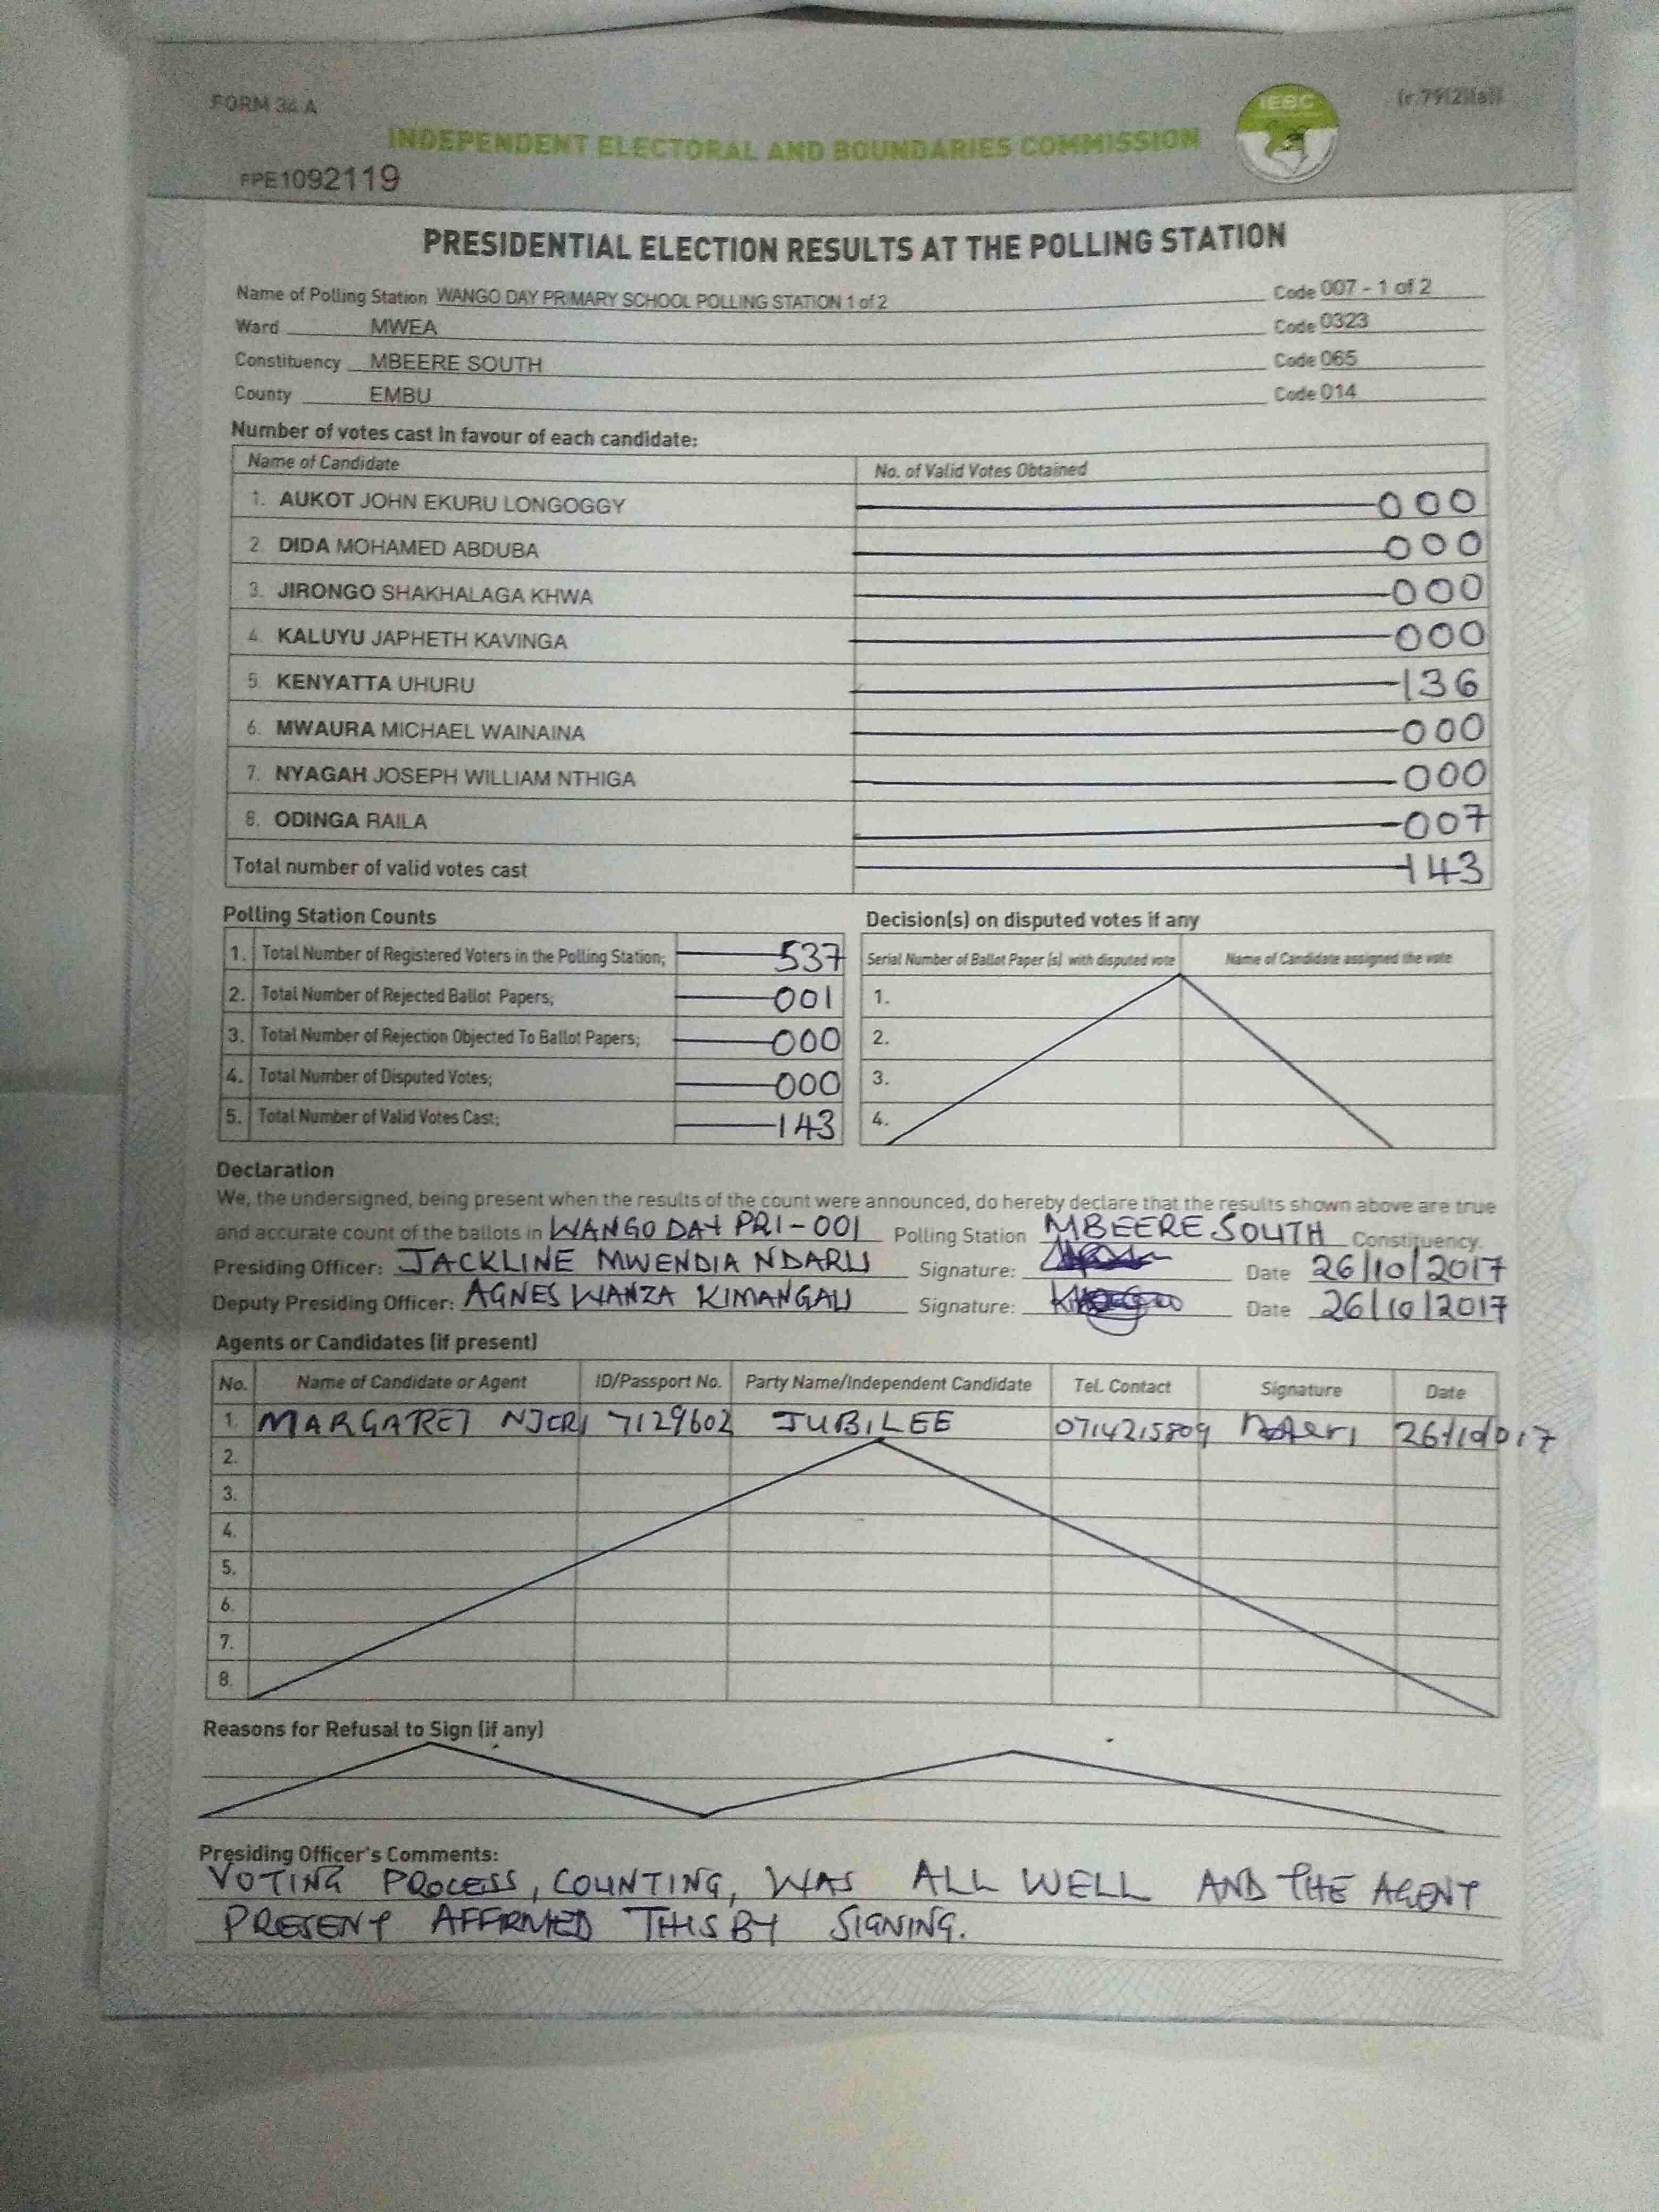 FORM 34 A
(r.79(2)(a))
IEBC
INDEPENDENT ELECTORAL AND BOUNDARIES COMMISSION
PPE1092119
PRESIDENTIAL ELECTION RESULTS AT THE POLLING STATION
Name of Polling Station WANGO DAY PRIMARY SCHOOL POLLING STATION 1 of 2 Code 007 - 1 of 2
Ward MWEA Code 0323
Constituency MBEERE SOUTH Code 065
County EMBU Code 014
Number of votes cast in favour of each candidate:
Name of Candidate No. of Valid Votes Obtained
1. AUKOT JOHN EKURU LONGOGGY 000
2. DIDA MOHAMED ABDUBA 000
3. JIRONGO SHAKHALAGA KHWA 000
4. KALUYU JAPHETH KAVINGA 000
5. KENYATTA UHURU 136
6. MWAURA MICHAEL WAINAINA 000
7. NYAGAH JOSEPH WILLIAM NTHIGA 000
8. ODINGA RAILA 007
Total number of valid votes cast 143
Polling Station Counts
1. Total Number of Registered Voters in the Polling Station; 537
2. Total Number of Rejected Ballot Papers; 001
3. Total Number of Rejection Objected To Ballot Papers; 000
4. Total Number of Disputed Votes; 000
5. Total Number of Valid Votes Cast; 143
Decision(s) on disputed votes if any
Serial Number of Ballot Paper (s) with disputed vote Name of Candidate assigned the vote
1.
2.
3.
4.
Declaration
We, the undersigned, being present when the results of the count were announced, do hereby declare that the results shown above are true
and accurate count of the ballots in WANGO DAY PRI-001 Polling Station MBEERE SOUTH Constituency.
Presiding Officer: JACKLINE MWENDIA NDARU Signature: Date 26/10/2017
Deputy Presiding Officer: AGNES WANZA KIMANGAU Signature: Date 26/10/2017
Agents or Candidates (if present)
No. Name of Candidate or Agent ID/Passport No. Party Name/Independent Candidate Tel. Contact Signature Date
1. MARGARET NJERI 7129602 JUBILEE 0714215809
2.
3.
4.
5.
6.
7.
8.
Reasons for Refusal to Sign (if any)
Presiding Officer's Comments:
VOTING PROCESS, COUNTING, WAS ALL WELL AND THE AGENT
PRESENT AFFIRMED THIS BY SIGNING.